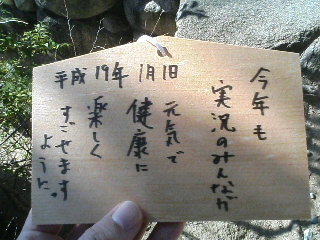 平成19年1月1日
今年も
実況のみんなが
元気で
健康に
楽しく
すごせます
ように。